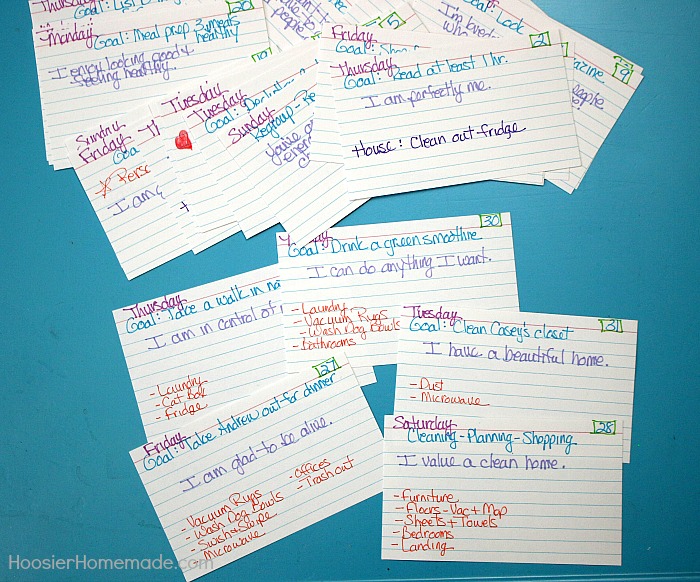 Thursday
Monday
Goal: Meal prep 3 meals
healthy
I enjoy looking good &
feeling healthy.
Friday
5
I'm loved
Look
9
people
Sunday
Friday
Goa
* Perso
I am
Tuesday
Tuesday
Sunday
Regroup - Re
2
Thursday
Goal: Read at least 1 hr.
I am perfectly me.
House: Clean out fridge
30
Goal: Drink a green smoothie
I can do anything I want.
- Laundry
- Vacuum Rugs
- Wash Dog Bowls
- Bathrooms
Thursday
Goal: Take a walk in na
I am in control of
- Laundry
- Cat Box
- Fridge
31
Tuesday
Goal: Clean Casey's closet
I have a beautiful home.
- Dust
- Microwave
27
Friday
Goal: Take Andrew out for dinner
I am glad to be alive.
- Vacuum Rugs
- Wash Dog Bowls
- Swish & Swipe
- Microwave
- Offices
- Trash out
28
Saturday
Cleaning - Planning - Shopping
I value a clean home.
- Furniture
- Floors - Vac + Mop
- Sheets + Towels
- Bedrooms
- Landing
HoosierHomemade.com